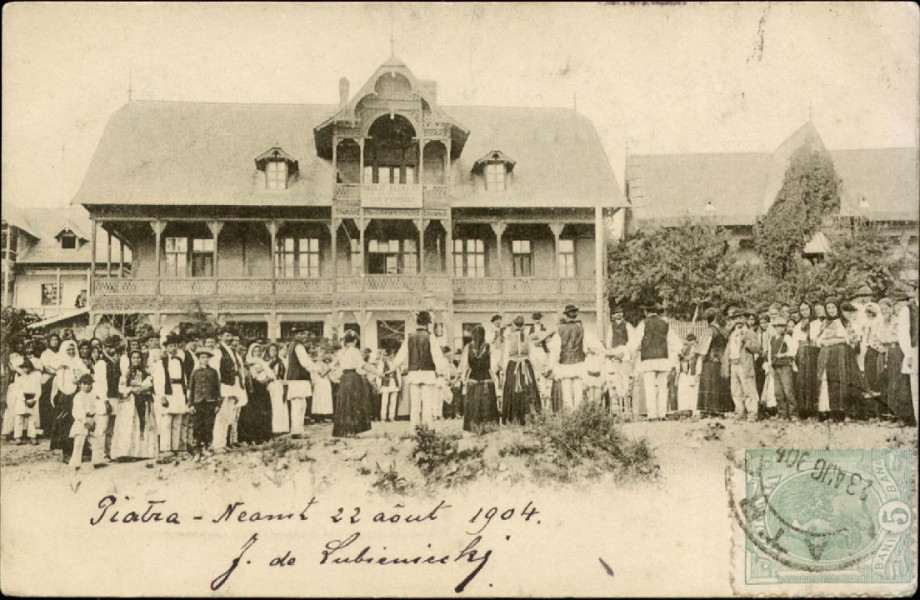 Piatra - Neamt 22 août 1904.
J. de Lubieniecki
23 AUG 904
BANI 5 BANI